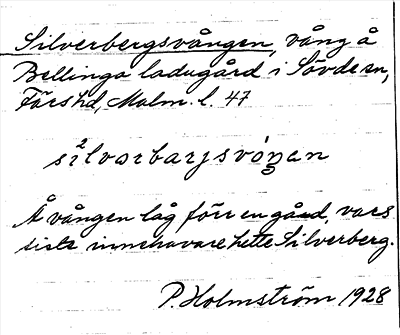 Silverbergsvången, vång å
Bellinga ladugård i Sövde sn,
Färs hd, Malm. l. 47
si²lvərbarjsvóŋən
Å vången låg förr en gård, vars
sista innehavare hette Silverberg.
P. Holmström 1928